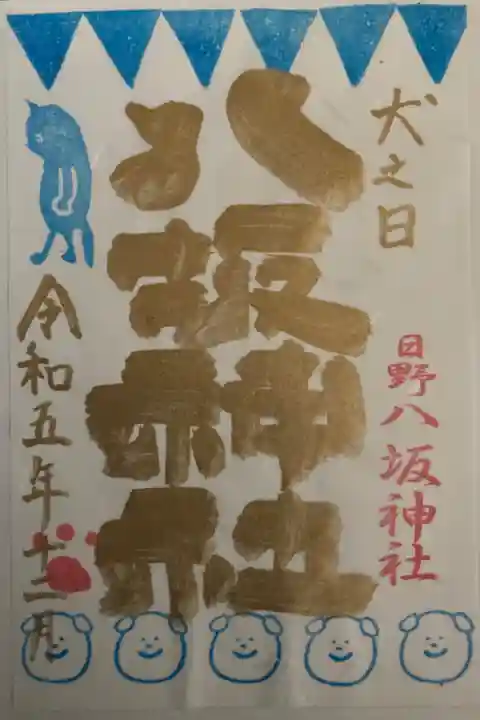 犬之日
日野八坂神社
八坂神社
令和五年十二月